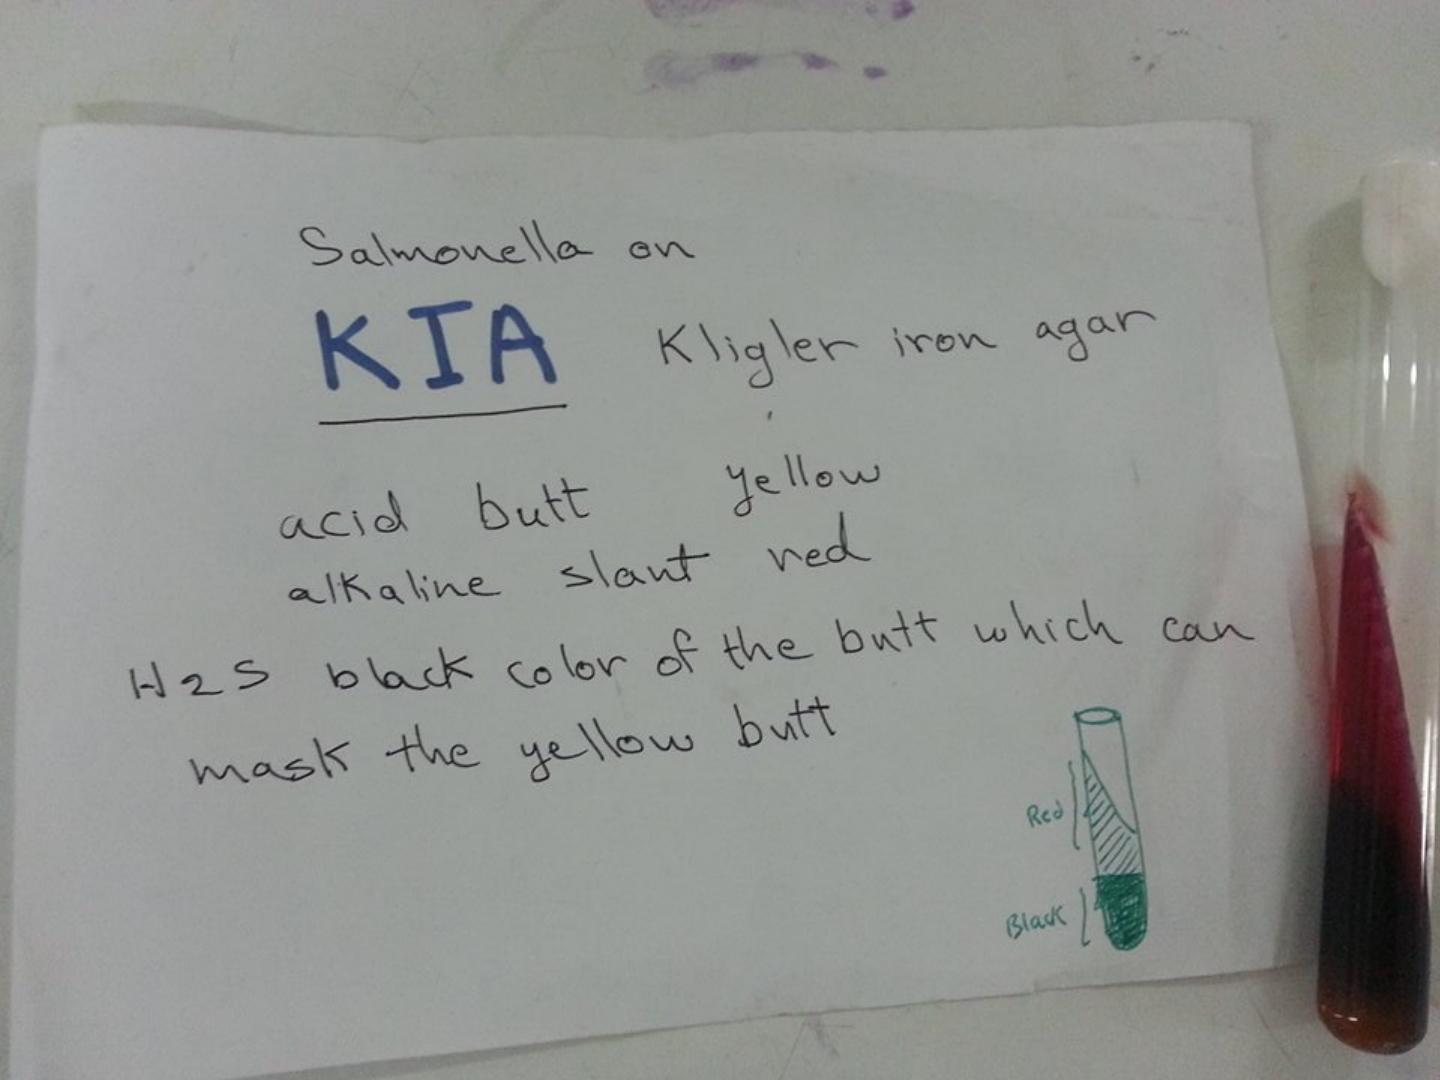 Salmonella on
KIA Kligler iron agar
acid butt yellow
alkaline slant red
H2S black color of the butt which can
mask the yellow butt
Red
Black